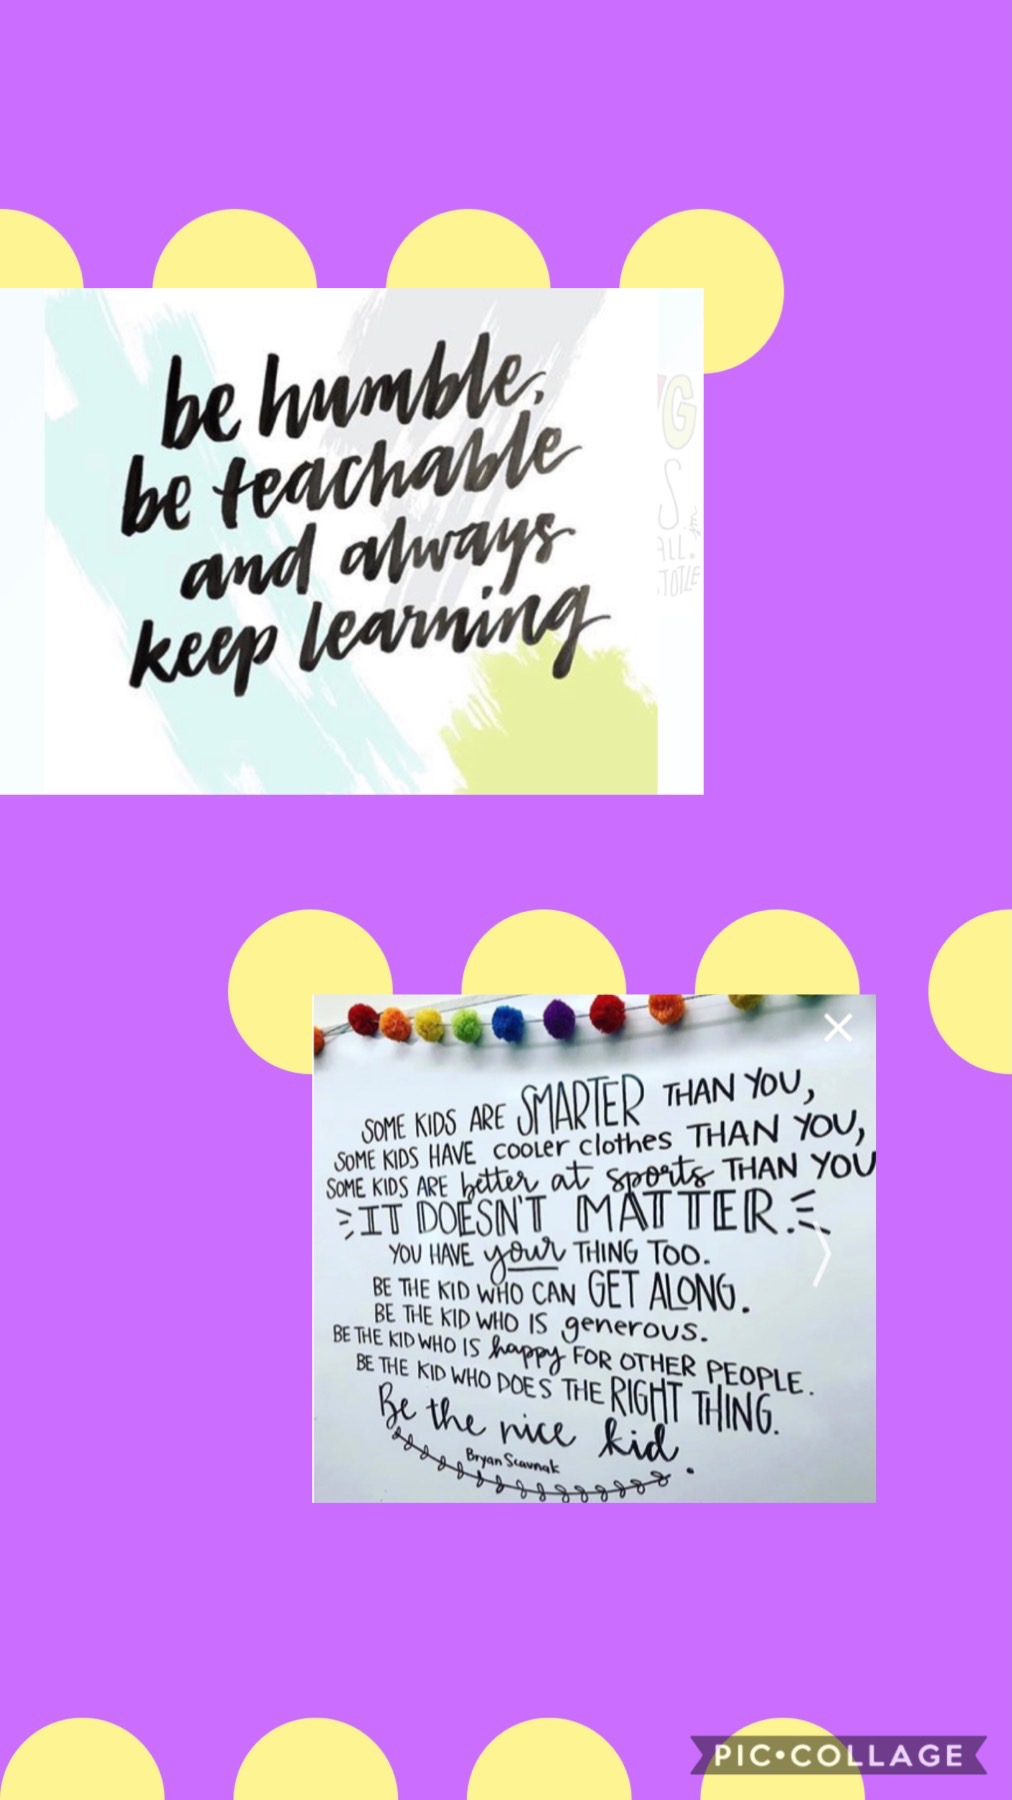 be humble,
be teachable
and always
keep learning
G
S
in
ALL.
TOTLE
SOME KIDS ARE SMARTER THAN YOU,
SOME KIDS HAVE cooler clothes THAN YOU,
SOME KIDS ARE better at sports THAN YOU
IT DOESN'T MATTER.
YOU HAVE your THING TOO.
BE THE KID WHO CAN GET ALONG.
BE THE KID WHO IS generous.
BE THE KID WHO IS happy FOR OTHER PEOPLE.
BE THE KID WHO DOES THE RIGHT THING.
Be the nice kid.
Bryan Scavnak
PIC•COLLAGE